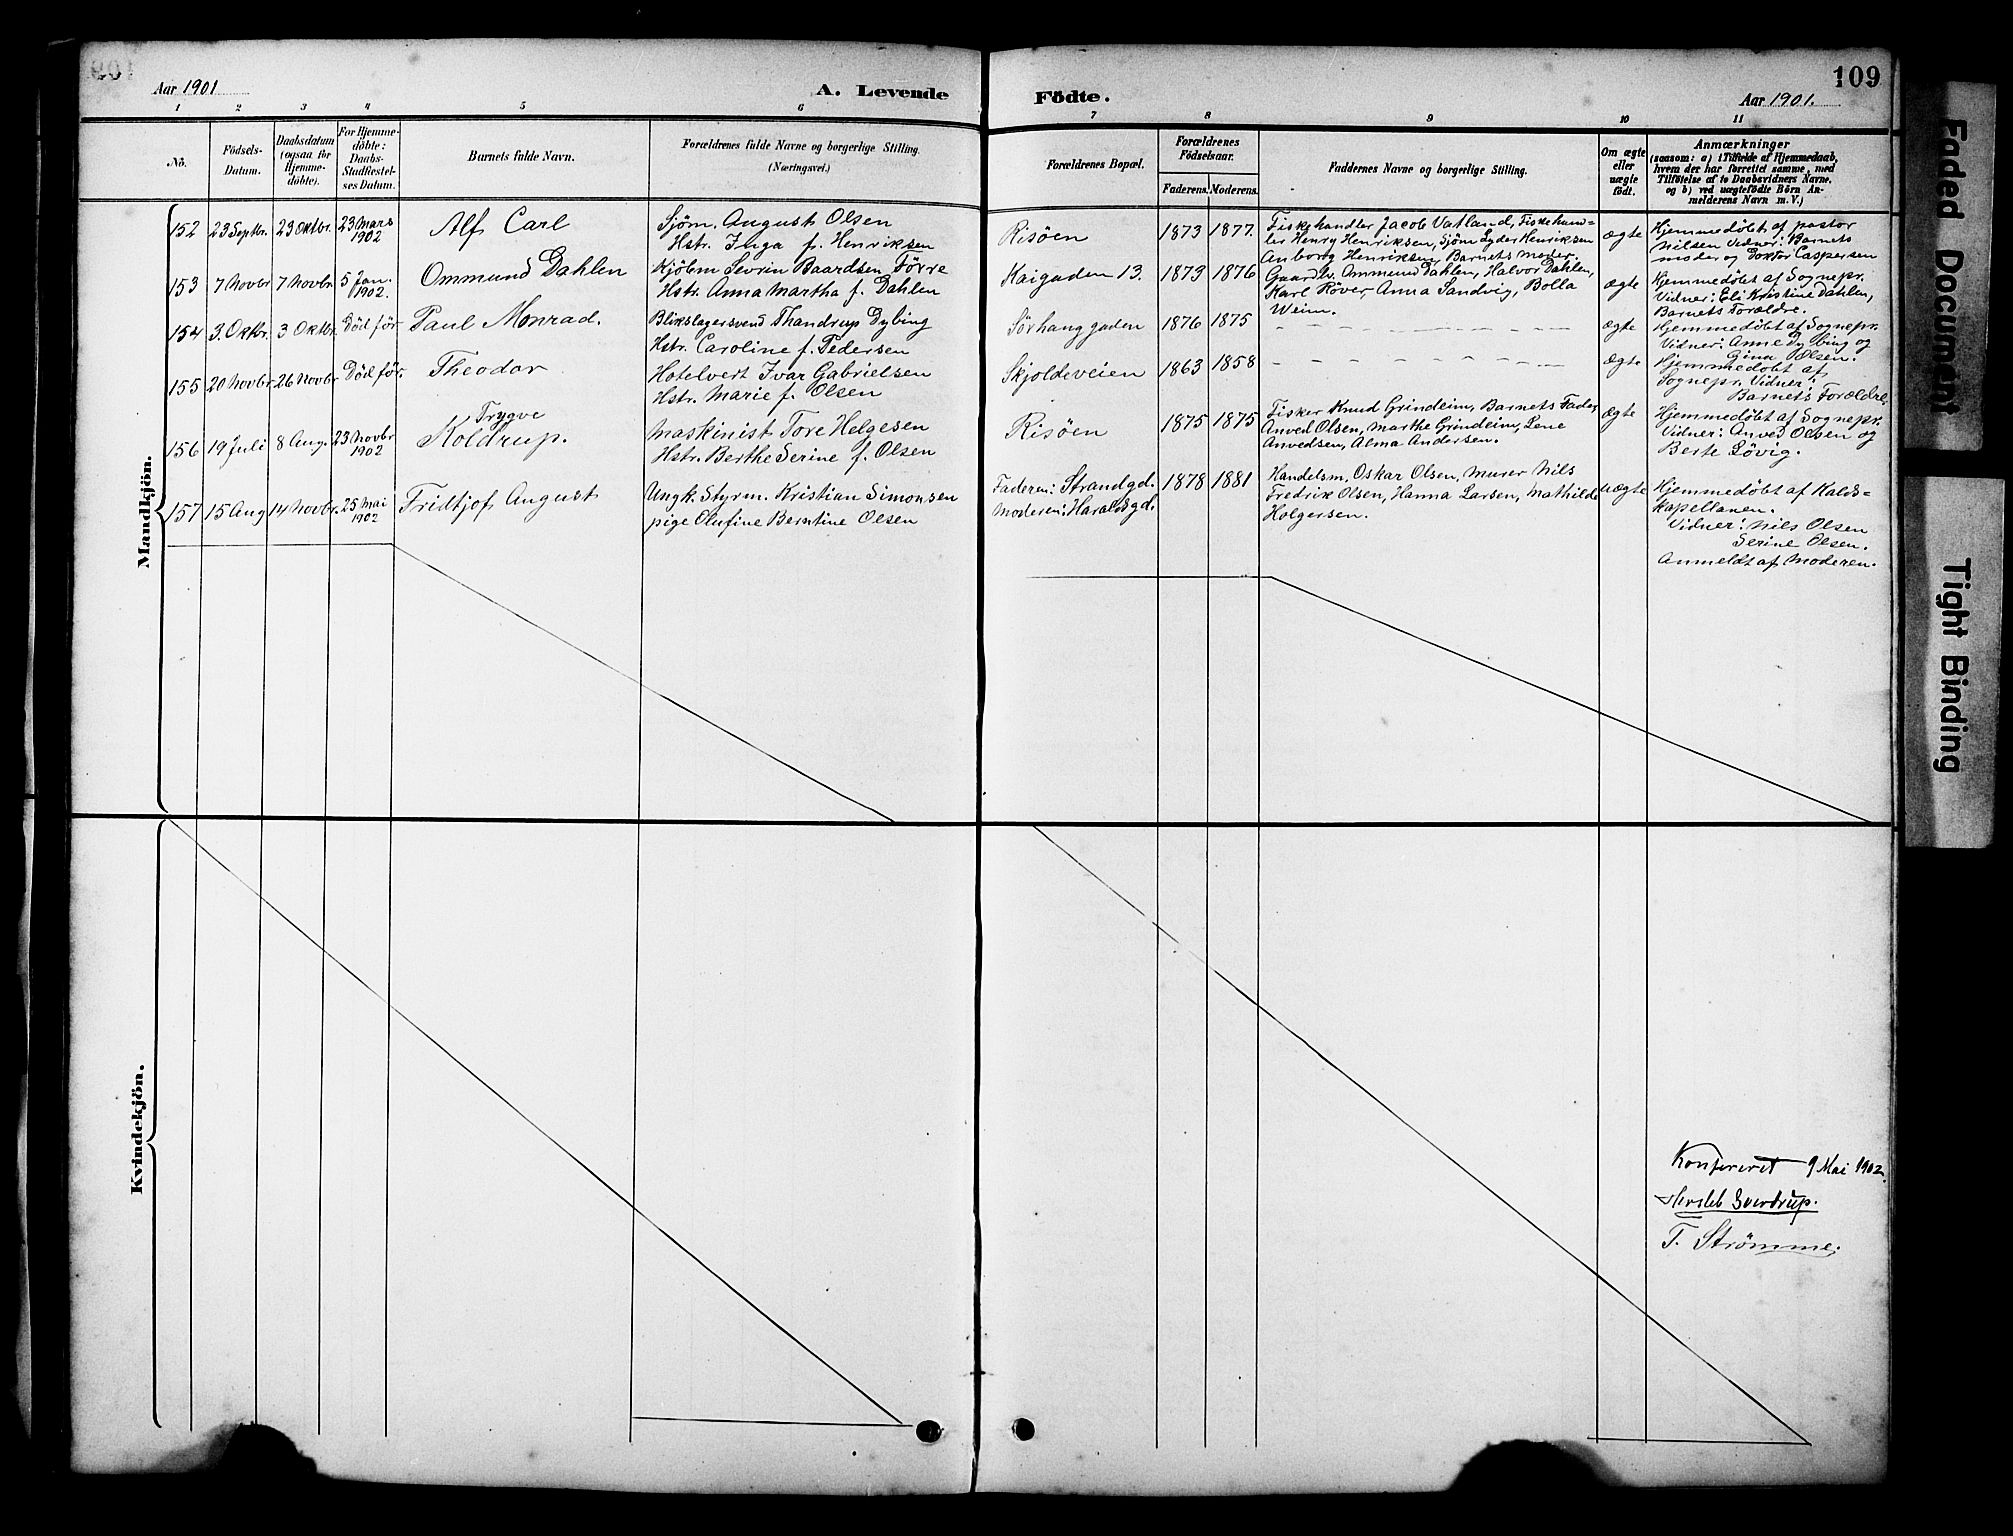 109
Aar 1901
A. Levende
Födte.
Aar 1901.
1 2 3 4 5 6 7 8 9 10 11
No.
Födsels-
Datum.
Daabsdatum
(ogsaa for
Hjemme-
döbte).
For Hjemme-
döbte:
Daabs-
Stadfæstel-
ses Datum.
Barnets fulde Navn.
Forældrenes fulde Navne og borgerlige Stilling.
(Næringsvei.)
Forældrenes Bopæl.
Forældrenes
Födselsaar.
Faderens.
Moderens.
Faddernes Navne og borgerlige Stilling.
Om ægte
eller
uægte
födt.
Anmærkninger
(saasom: a) i Tilfælde af Hjemmedaab,
hvem der har forrettet samme, med
Tilföielse af to Daabsvidners Navne,
og b) ved uægtefödte Börn An-
melderens Navn m. V.)
Mandkjön.
152 23 Septbr. 23 Oktbr. 23 Mars
1902
Alf Carl
Sjöm. August Olsen
Hstr. Inga f. Henriksen
Risöen
1873 1877.
Fiskehandler Jacob Vatland, Fiskehand=
ler Henry Henriksen, Sjöm Lyder Henriksen
Anborg Henriksen, Barnets moder.
ægte
Hjemmedöbt af pastor
Nilsen Vidner: Barnets
moder og Doktor Caspersen
153 7 Novbr 7 Novbr. 5 Jan.
1902.
Ommund Dahlen
Kjöbm Sevrin Baardsen Förre
Hstr. Anna Martha f. Dahlen
Kaigaden 13.
1873 1876
Gaardbr. Ommund Dahlen, Halvor Dahlen,
Karl Röver, Anna Sandvig, Bolla
Weim.
ægte
Hjemmedöbt af Sognepr.
Vidner: Eli Kristine Dahlen,
Barnets Forældre.
154 3. Oktbr. 3 Oktbr. Död för
Paul Monrad.
Blikslagersvend Thandrup Dybing
Hstr. Caroline f. Pedersen
Sörhauggaden
1876 1875
ægte
Hjemmedöbt af Sognepr.
Vidner: Anne Dybing og
Gina Pölsen.
155 20 Novbr. 26 Novbr Död för.
Theodor
Hotelvert Ivar Gabrielsen
Hstr. Marie f. Olsen
Skjoldeveien
1863 1858
ægte
Hjemmedöbt af
Sognepr. Vidner:
Barnets Forældre.
156 19 Juli 8 Aug. 23 Novbr
1902
Trygve
Koldrup.
Maskinist Tore Helgesen
Hstr. Berthe Serine f. Olsen
Risöen
1875 1875
Fisker Knud Grindeim, Barnets Fader,
Anved Olsen, Marthe Grindeim, Lene
Anvedsen, Alma Andersen.
ægte
Hjemmedöbt af Sognepr.
Vidner: Anved Olsen og
Berte Lövig.
157 15 Aug 14 Novbr. 25 Mai
1902
Fridtjof August
Ungk. Styrm. Kristian Simonsen
pige Olufine Berntine Olsen
Faderen: Strandgd.
Moderen: Haraldsgd.
1878 1881
Handelsm, Oskar Olsen, Murer Nils
Fredrik Olsen, Hanna Larsen, Mathilde
Holgersen.
uægte
Hjemmedöbt af Kalds=
kapellanen.
Vidner: Nils Olsen
Serine Olsen.
Anmeldt af Moderen.
Kvindekjön.
Konfereret 9 Mai 1902.
Hersleb Sverdrup.
T. Strömme.
Faded Document
Tight Binding